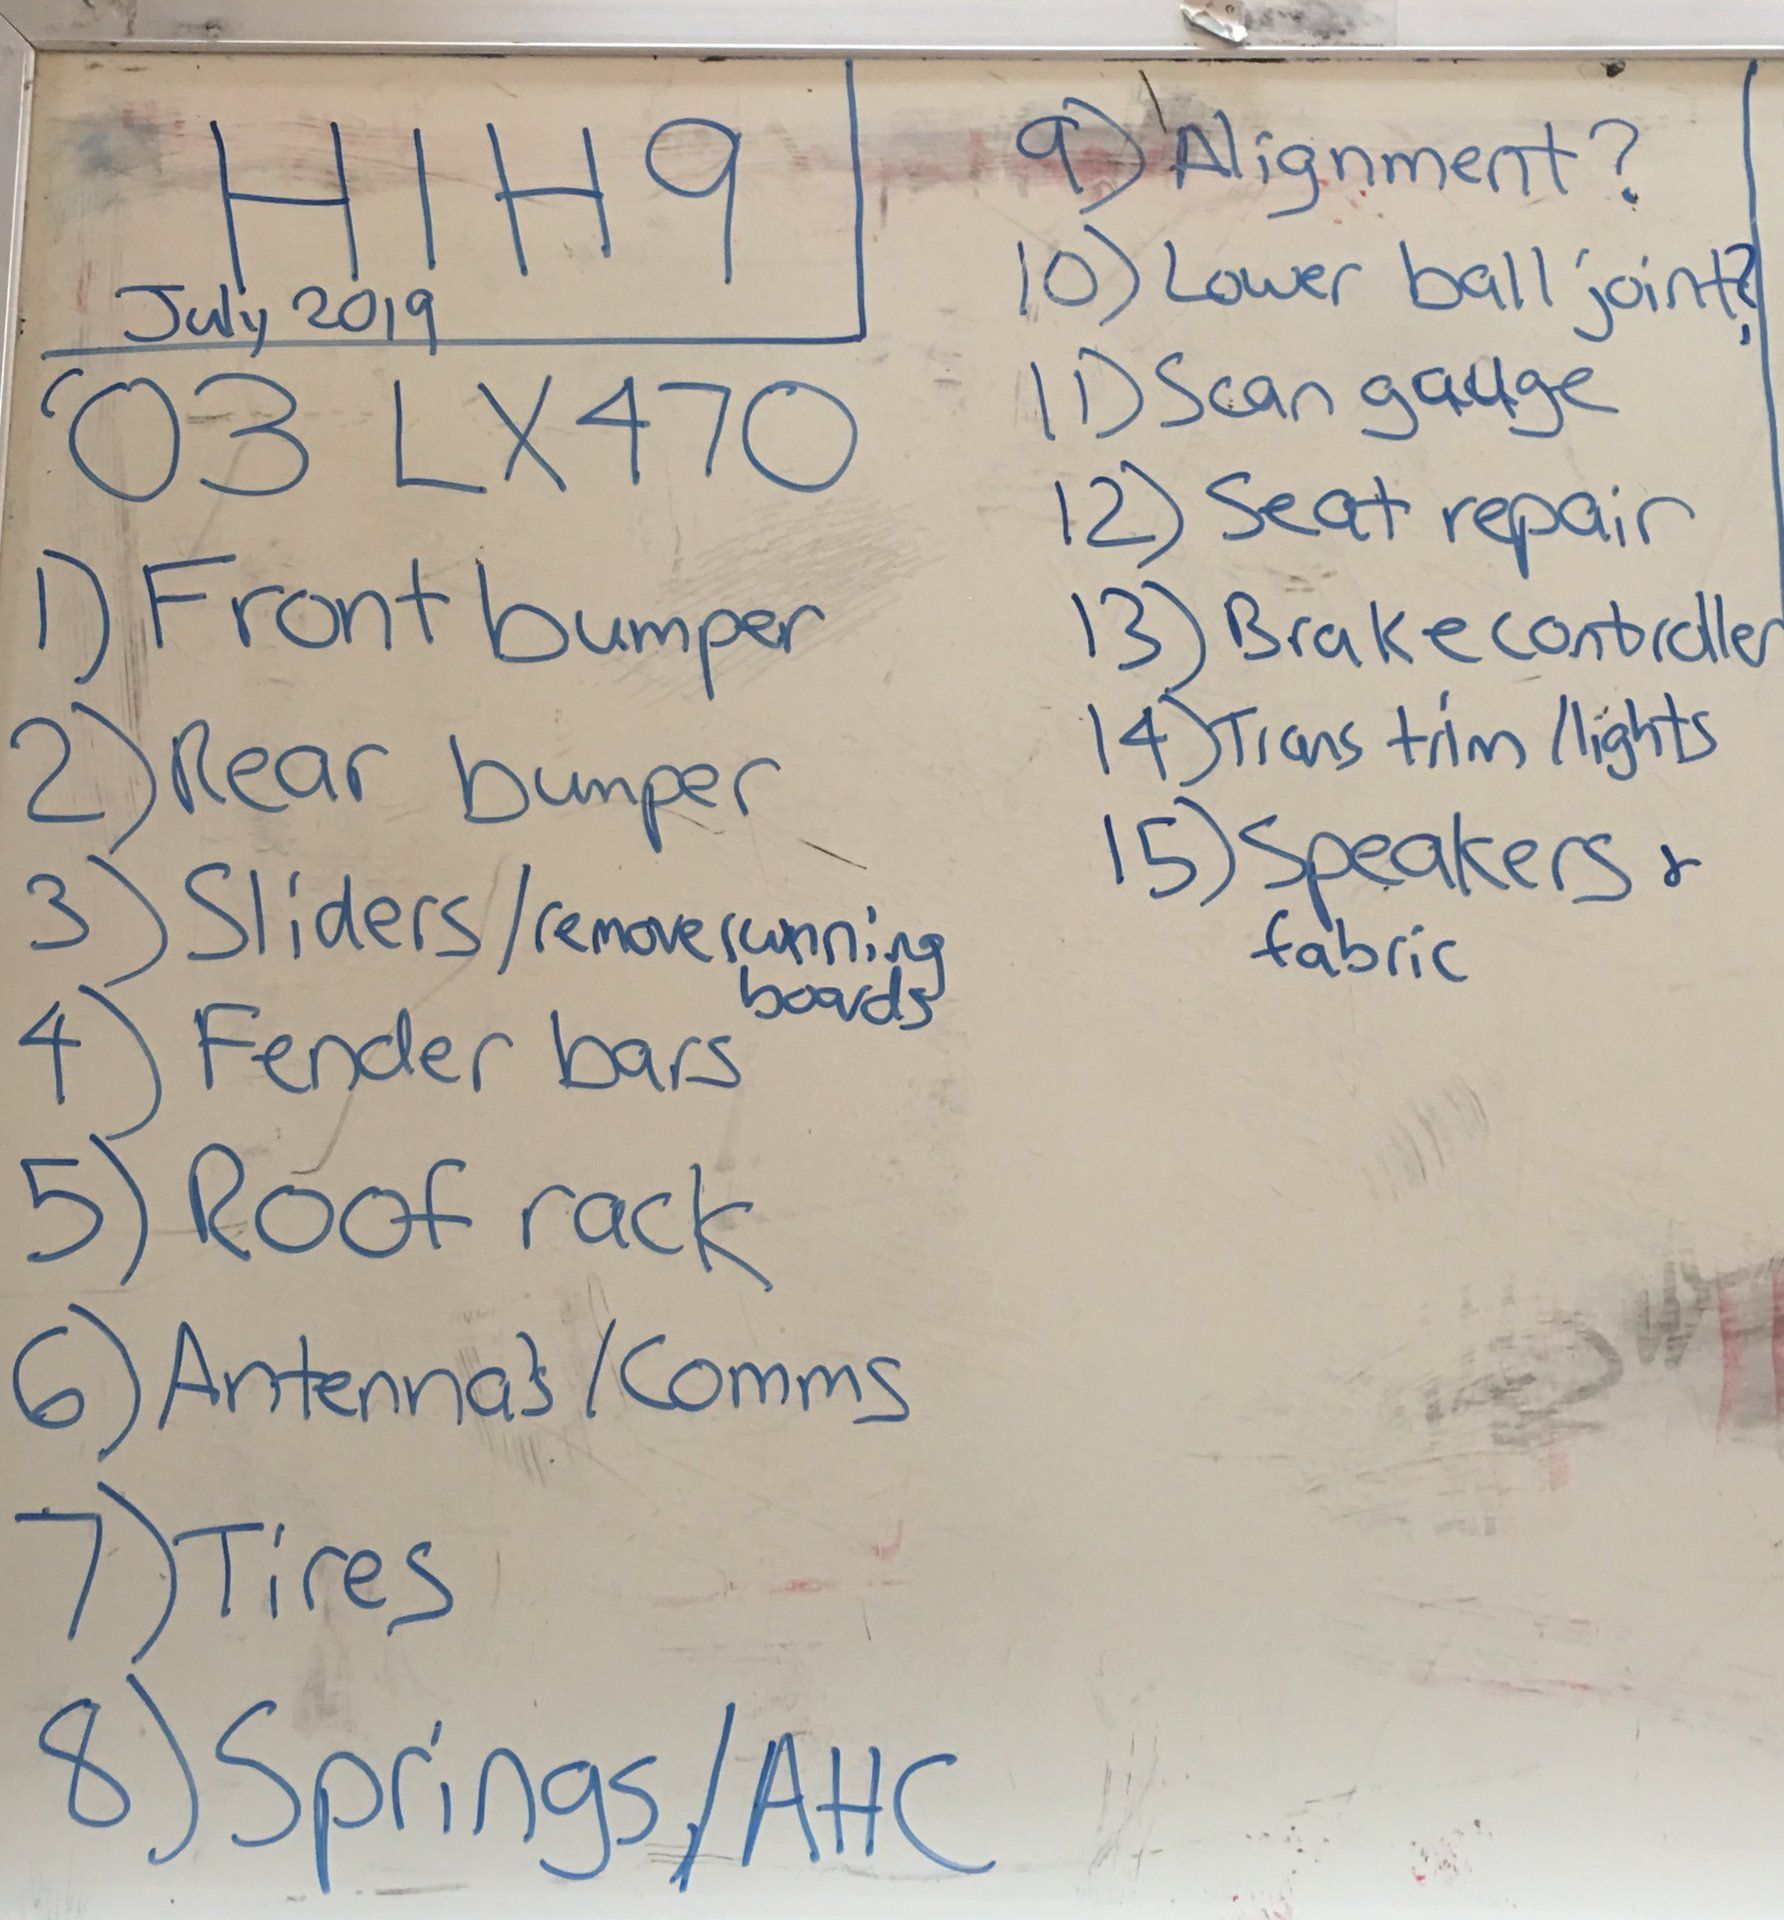 H1H9
July 2019
'03 LX470
1) Front bumper
2) Rear bumper
3) Sliders/remove running
boards
4) Fender bars
5) Roof rack
6) Antenna's/Comms
7) Tires
8) Springs/AHC
9) Alignment?
10) Lower ball joint?
11) Scan gauge
12) Seat repair
13) Brake controller
14) Trans trim/lights
15) Speakers &
fabric